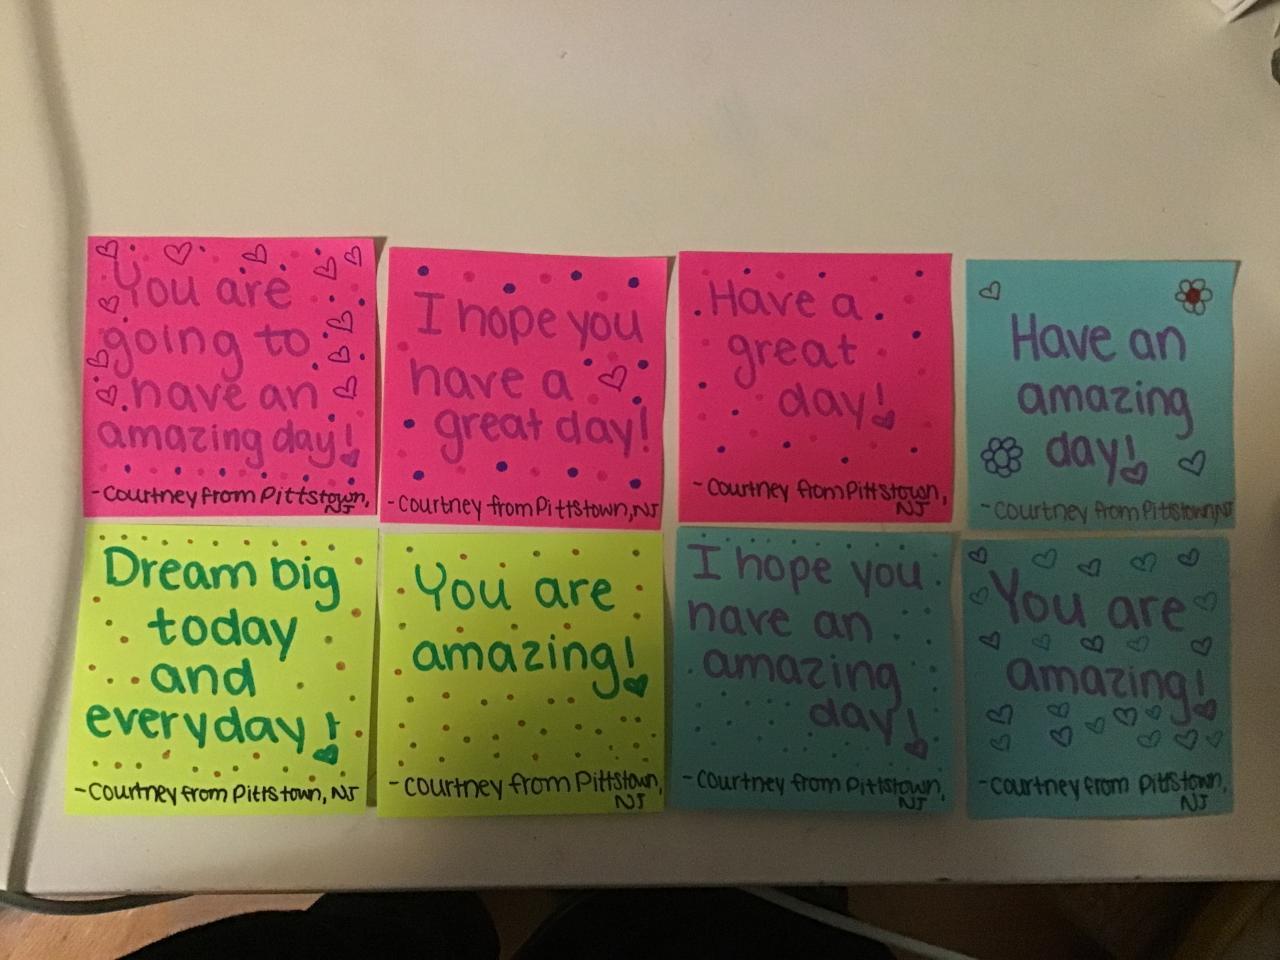 You are
going to
have an
amazing day!
-Courtney from Pittstown,
NJ
I hope you
have a
great day!
-Courtney from Pittstown, NJ
Have a
great
day!
-Courtney from Pittstown,
NJ
Have an
amazing
day!
-Courtney from Pittstown, NJ
Dream big
today
and
everyday!
-Courtney from Pittstown, NJ
You are
amazing!
-Courtney from Pittstown,
NJ
I hope you
have an
amazing
day!
-Courtney from Pittstown,
NJ
You are
amazing!
-Courtney from Pittstown,
NJ